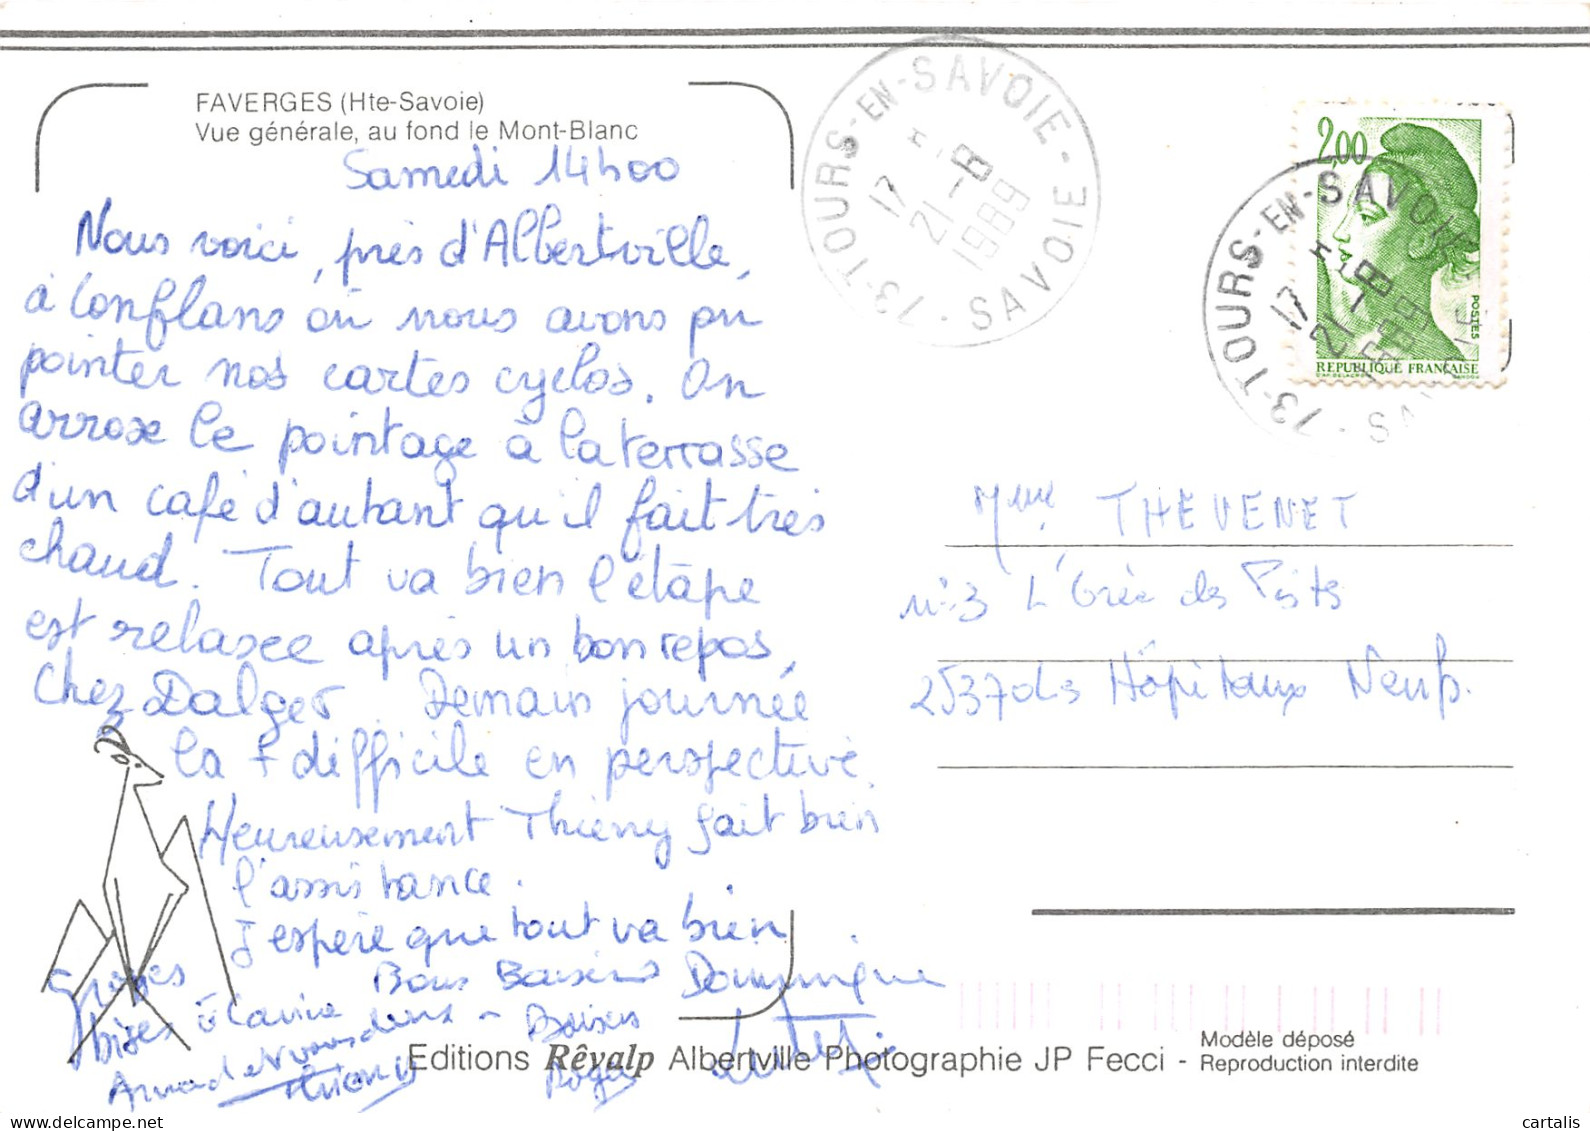 FAVERGES (Hte-Savoie)
Vue générale, au fond le Mont-Blanc
Samedi 14h00
Nous voici, près d'Albertville,
à Conflans où nous avons pu
pointer nos cartes cyclos. On
arrose le pointage à la terrasse
d'un café d'autant qu'il fait très
chaud. Tout va bien l'étape
est relaxee après un bon repos,
chez Dalger. Demain journée
la + difficile en perspective.
Heureusement Thierry fait bien
l'assistance.
J'espère que tout va bien
Bons Baisers Dominique
Grosses
bises
Baisers
Roger
Thierry
73-TOURS-EN-SAVOIE-SAVOIE
17 H
21-8
1989
2,00
POSTES
REPUBLIQUE FRANÇAISE
73-TOURS-EN-SAVOIE-SAVOIE
17 H
21-8
1989
Mme THEVENET
n°3 L'Orée des
25370 Les Hôpitaux Neufs.
Editions Rêvalp Albertville Photographie JP Fecci -
Modèle déposé
Reproduction interdite
cartalis